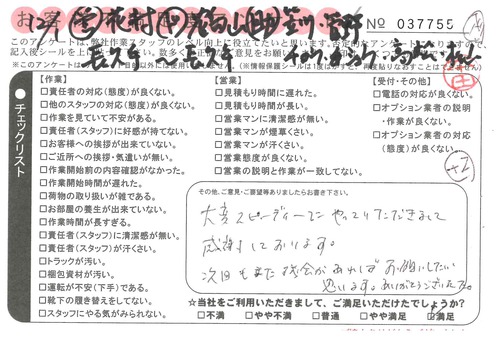 No 037755
このアンケートは、弊社作業スタッフのレベル向上に役立てたいと思います。
チェックリスト
【作業】
□責任者の対応(態度)が良くない。
□他のスタッフの対応が良くない。
□作業を見ていて不安がある。
□責任者(スタッフ)に好感が持てない。
□お客様への挨拶が出来ていない。
□ご近所への挨拶・気遣いが無い。
□作業開始前の内容確認がなかった。
□作業開始時間が遅れた。
□荷物の取り扱いが雑である。
□お部屋の養生が出来ていない。
□作業時間が長すぎる。
□責任者(スタッフ)に清潔感が無い。
□責任者(スタッフ)が汗くさい。
□トラックが汚い。
□梱包資材が汚い。
□運転が不安(下手)である。
□靴下の履き替えをしてない。
□スタッフにやる気がみられない。
【営業】
□見積もり時間に遅れた。
□見積もり時間が長い。
□営業マンに清潔感が無い。
□営業マンが煙草くさい。
□営業マンが汗くさい。
□営業態度が良くない。
□営業の説明と作業が一致してない。
【受付・その他】
□電話の対応が良くない。
□オプション業者の説明
・作業が良くない。
□オプション業者の対応
(態度)が良くない。
その他、ご意見・ご要望等ありましたらお書き下さい。
大変スピーディーに やっていただきまして
感謝しております。
次回もまた機会があれば お願いしたい
思います。ありがとうございました。
☆当社をご利用いただきまして、ご満足いただけたでしょうか?
□不満 □やや不満 □普通 □やや満足 ☑満足